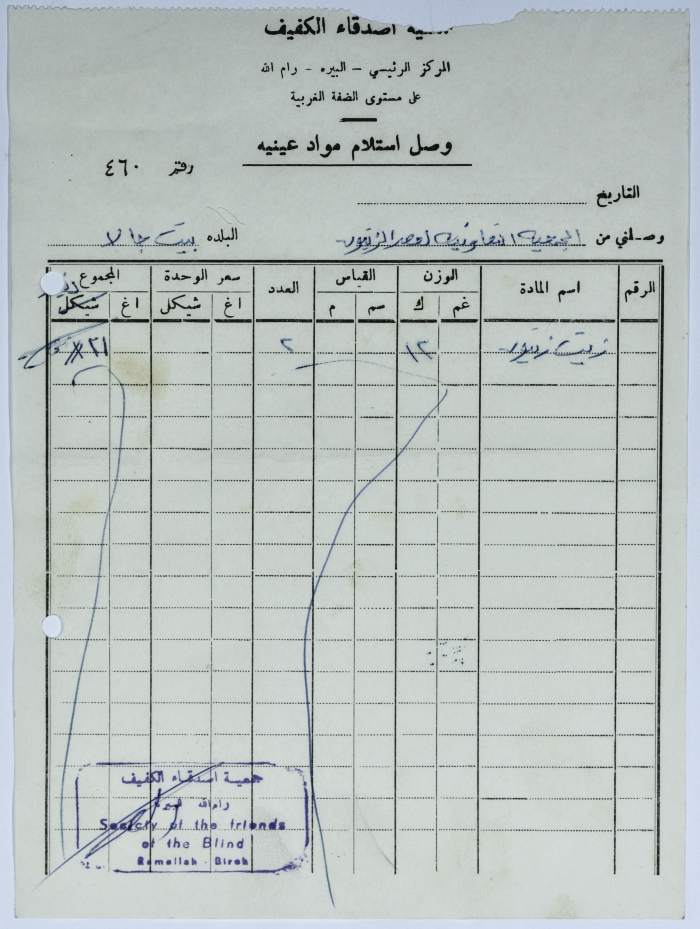 أصدقاء الكفيف
المركز الرئيسي – البيره – رام الله
على مستوى الضفة الغربية
وصل استلام مواد عينيه
رقم ٤٦٠
التاريخ
وصلني من الجمعية التعاونية لعصر الزيتون البلده بيت جالا
الرقم اسم المادة الوزن القياس العدد سعر الوحدة المجموع
غم ك سم م اغ شيكل اغ شيكل
زيت زيتون ١٢ ٢
جمعية اصدقاء الكفيف
رام الله البيرة
Society of the friends
of the Blind
Ramallah - Bireh